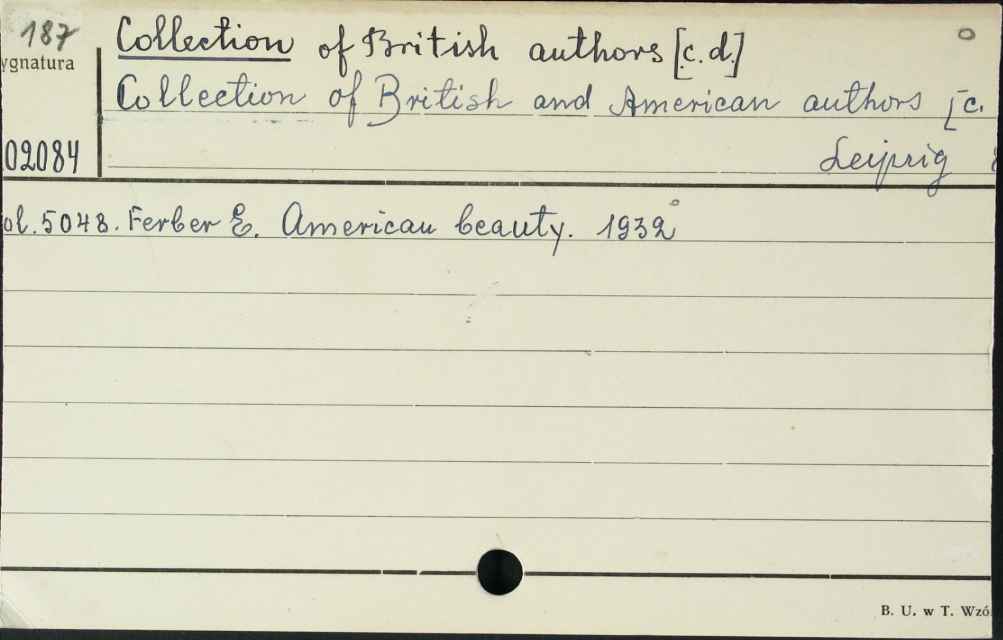 187
Collection of British authors [c.d.]
ygnatura
Collection of British and American authors [c.
02084
Leipzig 8
ol. 5048. Ferber E. American beauty. 1932°
B. U. w T. Wzó